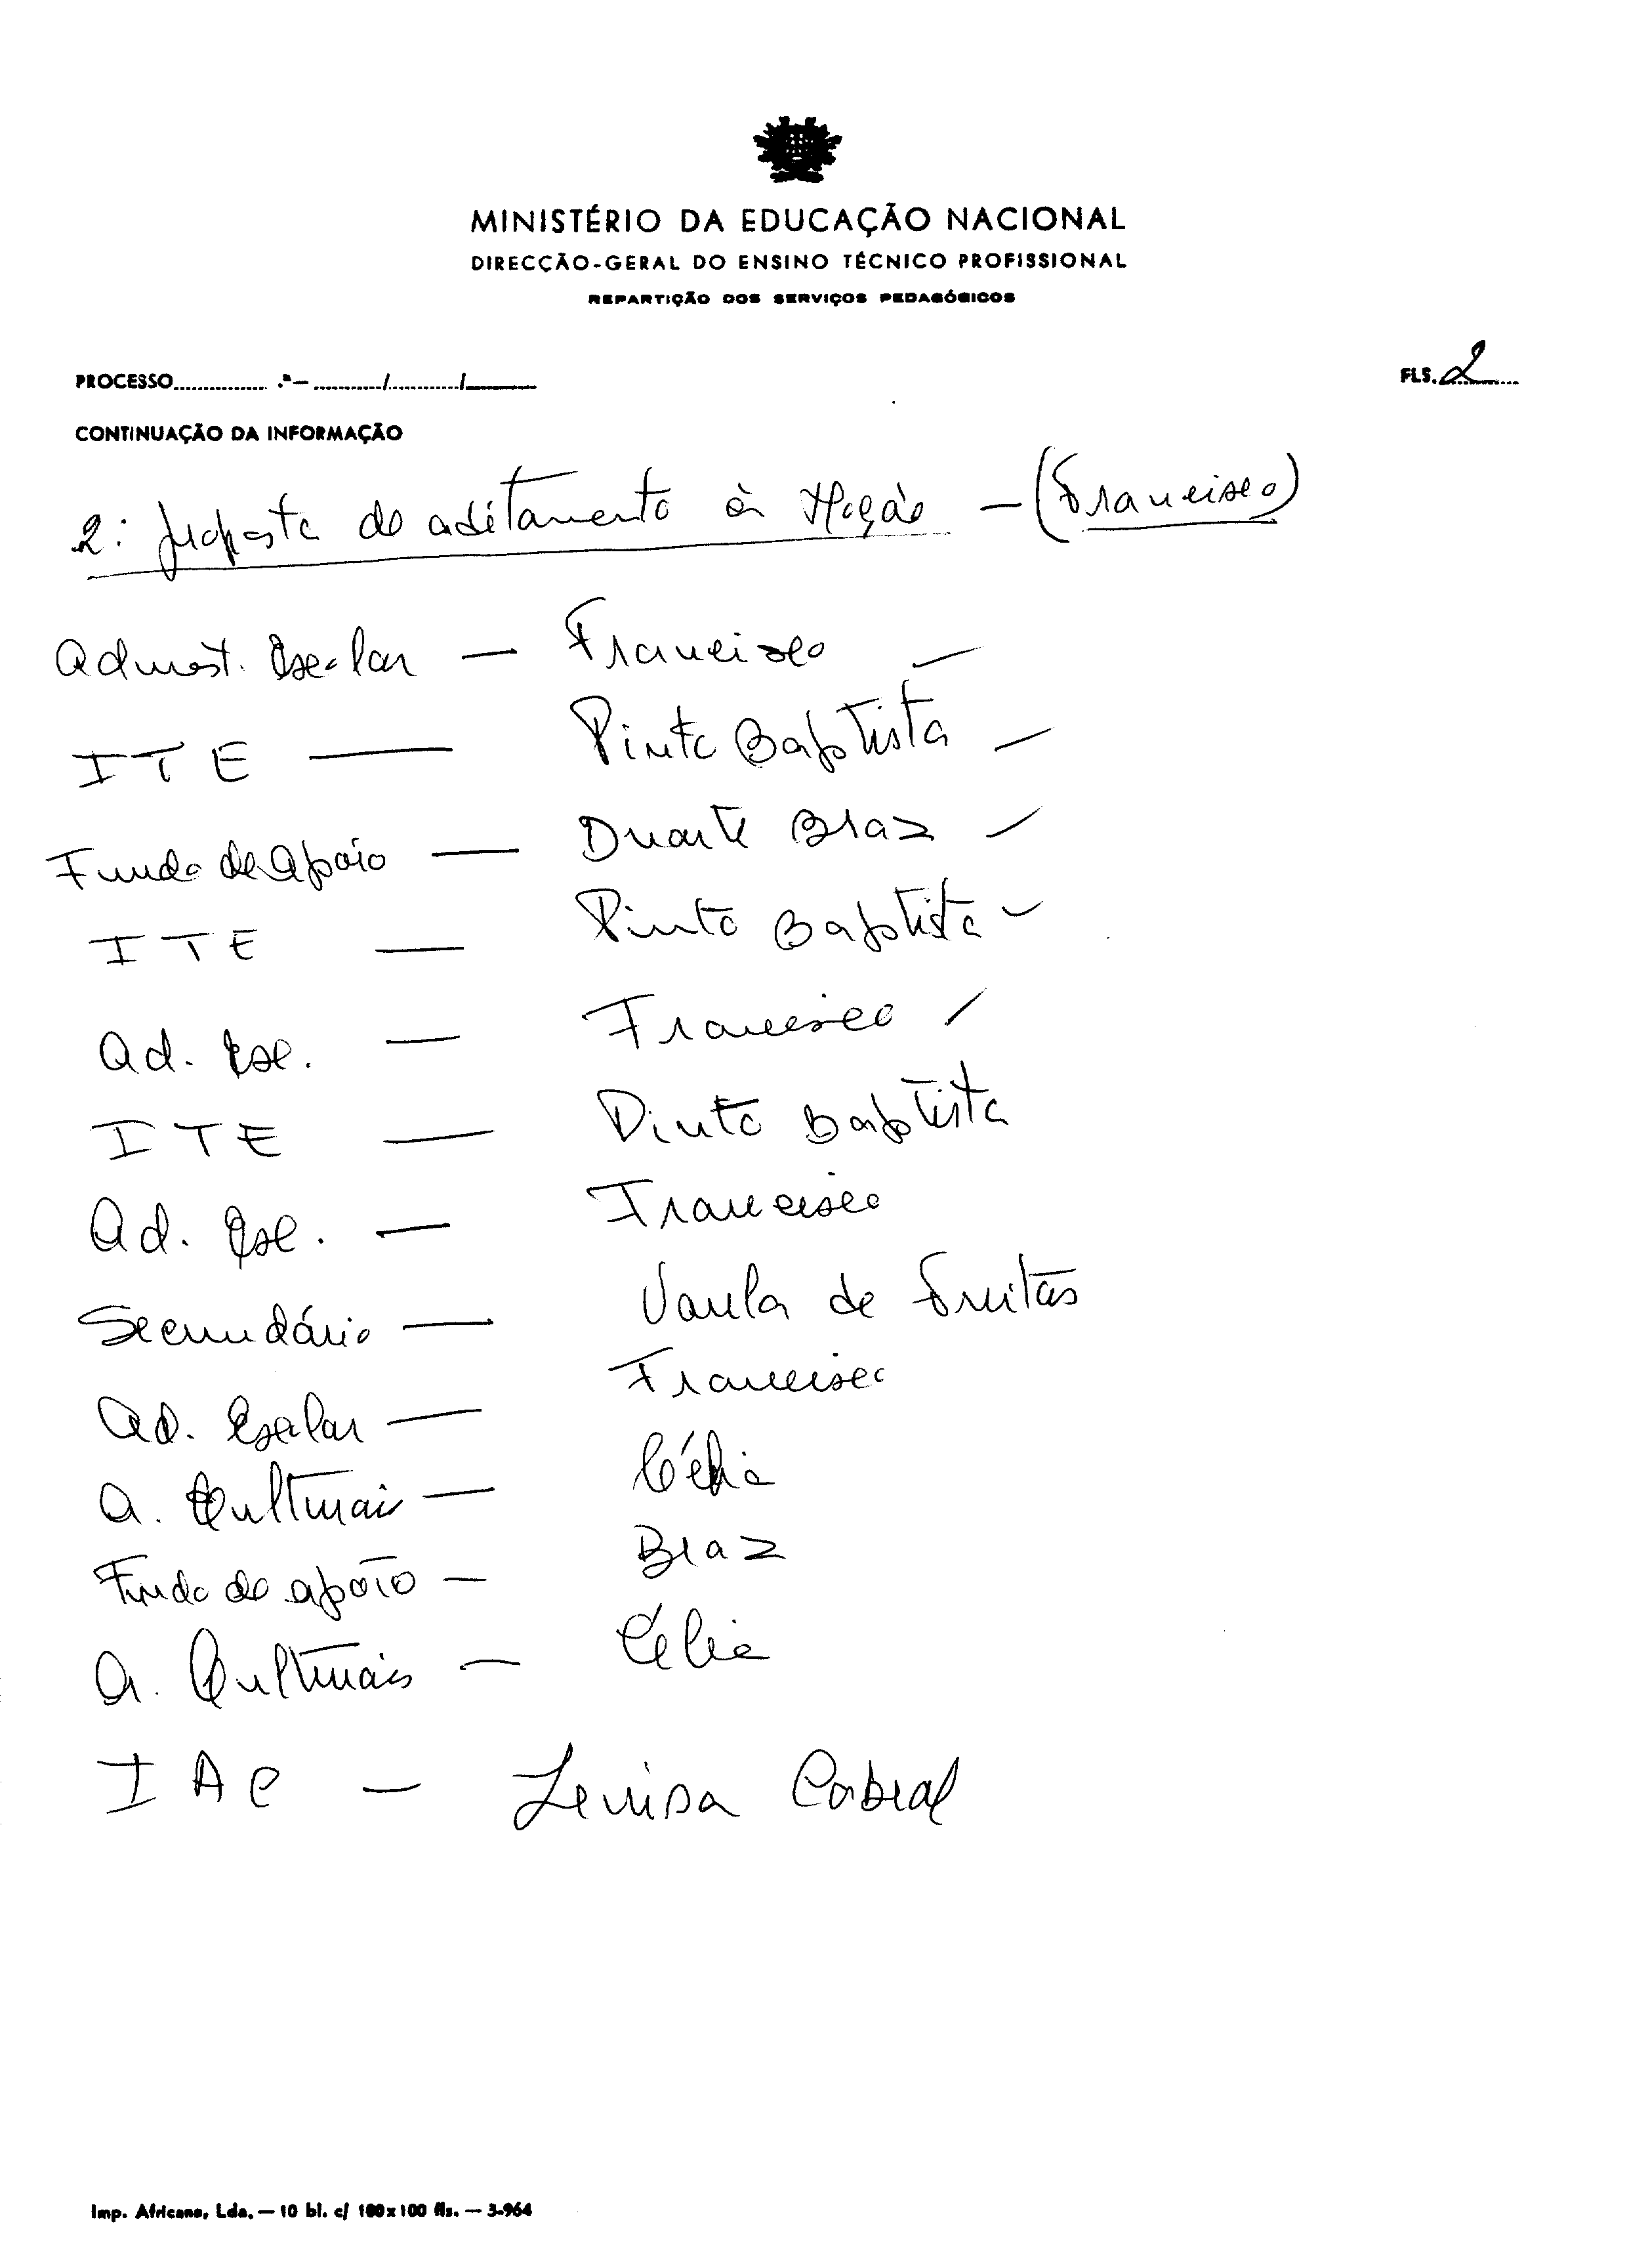 MINISTÉRIO DA EDUCAÇÃO NACIONAL
DIRECÇÃO-GERAL DO ENSINO TÉCNICO PROFISSIONAL
REPARTIÇÃO DOS SERVIÇOS PEDAGÓGICOS
PROCESSO............... .ª— ............/............/............
FLS. 2
CONTINUAÇÃO DA INFORMAÇÃO
2: proposta de aditamento à Moção — (Francisco)
Escolar — Francisco —
ITE — Pinto Baptista —
Fundo de Apoio — Duarte Braz —
ITE — Pinto Baptista —
Ad. Esc. — Francisco /
ITE — Pinto Baptista
Ad. Esc. — Francisco
Secundário — de Freitas
Ad. Escolar — Francisco
A. Culturais — Célia
Fundo de apoio — Braz
A. Culturais — Célia
IAC — Cabral
Imp. Africana, Lda. — 10 bl. c/ 100x100 fls. — 3-964